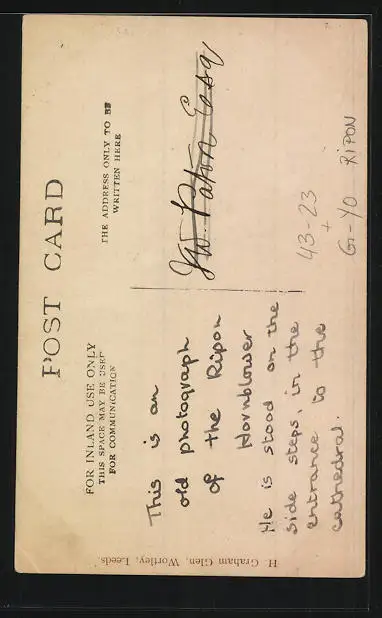 POST CARD
FOR INLAND USE ONLY
THIS SPACE MAY BE USED
FOR COMMUNICATION
THE ADDRESS ONLY TO BE
WRITTEN HERE
This is an
old photograph
of the Ripon
Hornblower
He is stood on the
side steps, in the
entrance to the
cathedral.
J W. Paton Esq
43-23
+
G-YO RIPON
H. Graham Glen, Wortley, Leeds.